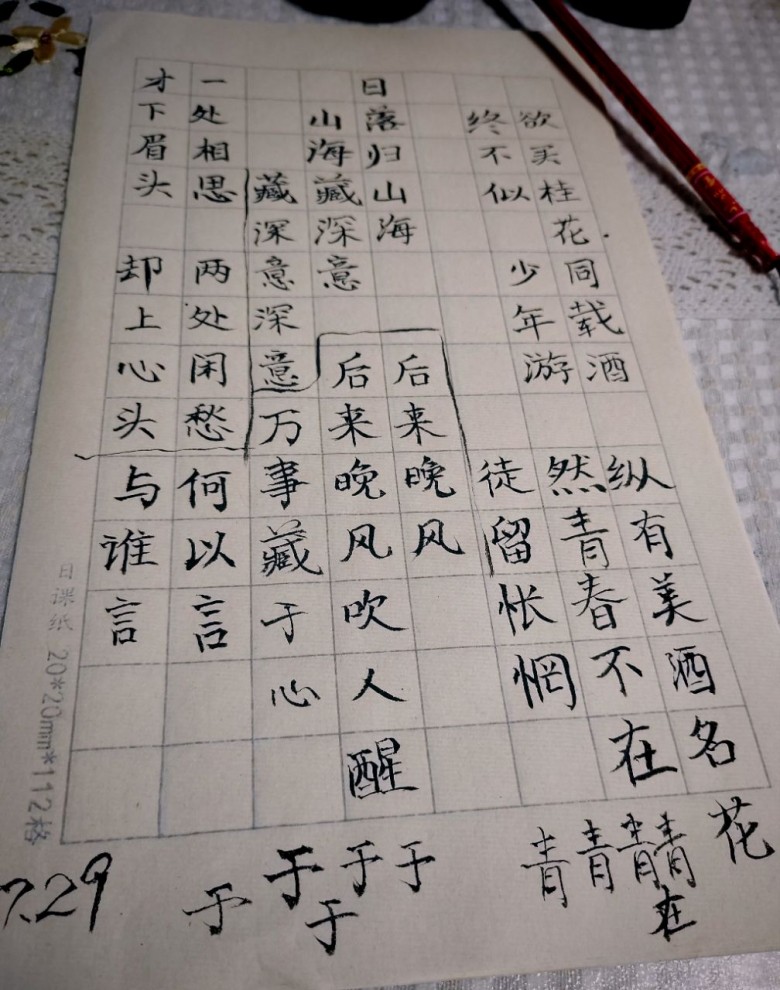 欲买桂花同载酒
终不似少年游
纵有美酒名花
然青春不在
徒留怅惘
日落归山海
山海藏深意
藏深意深意
后来晚风
后来晚风吹人醒
万事藏于心
一处相思 两处闲愁
才下眉头 却上心头
何以言
与谁言
青青青青
在
于于于于
于
7.29
日课纸 20*20mm*112格